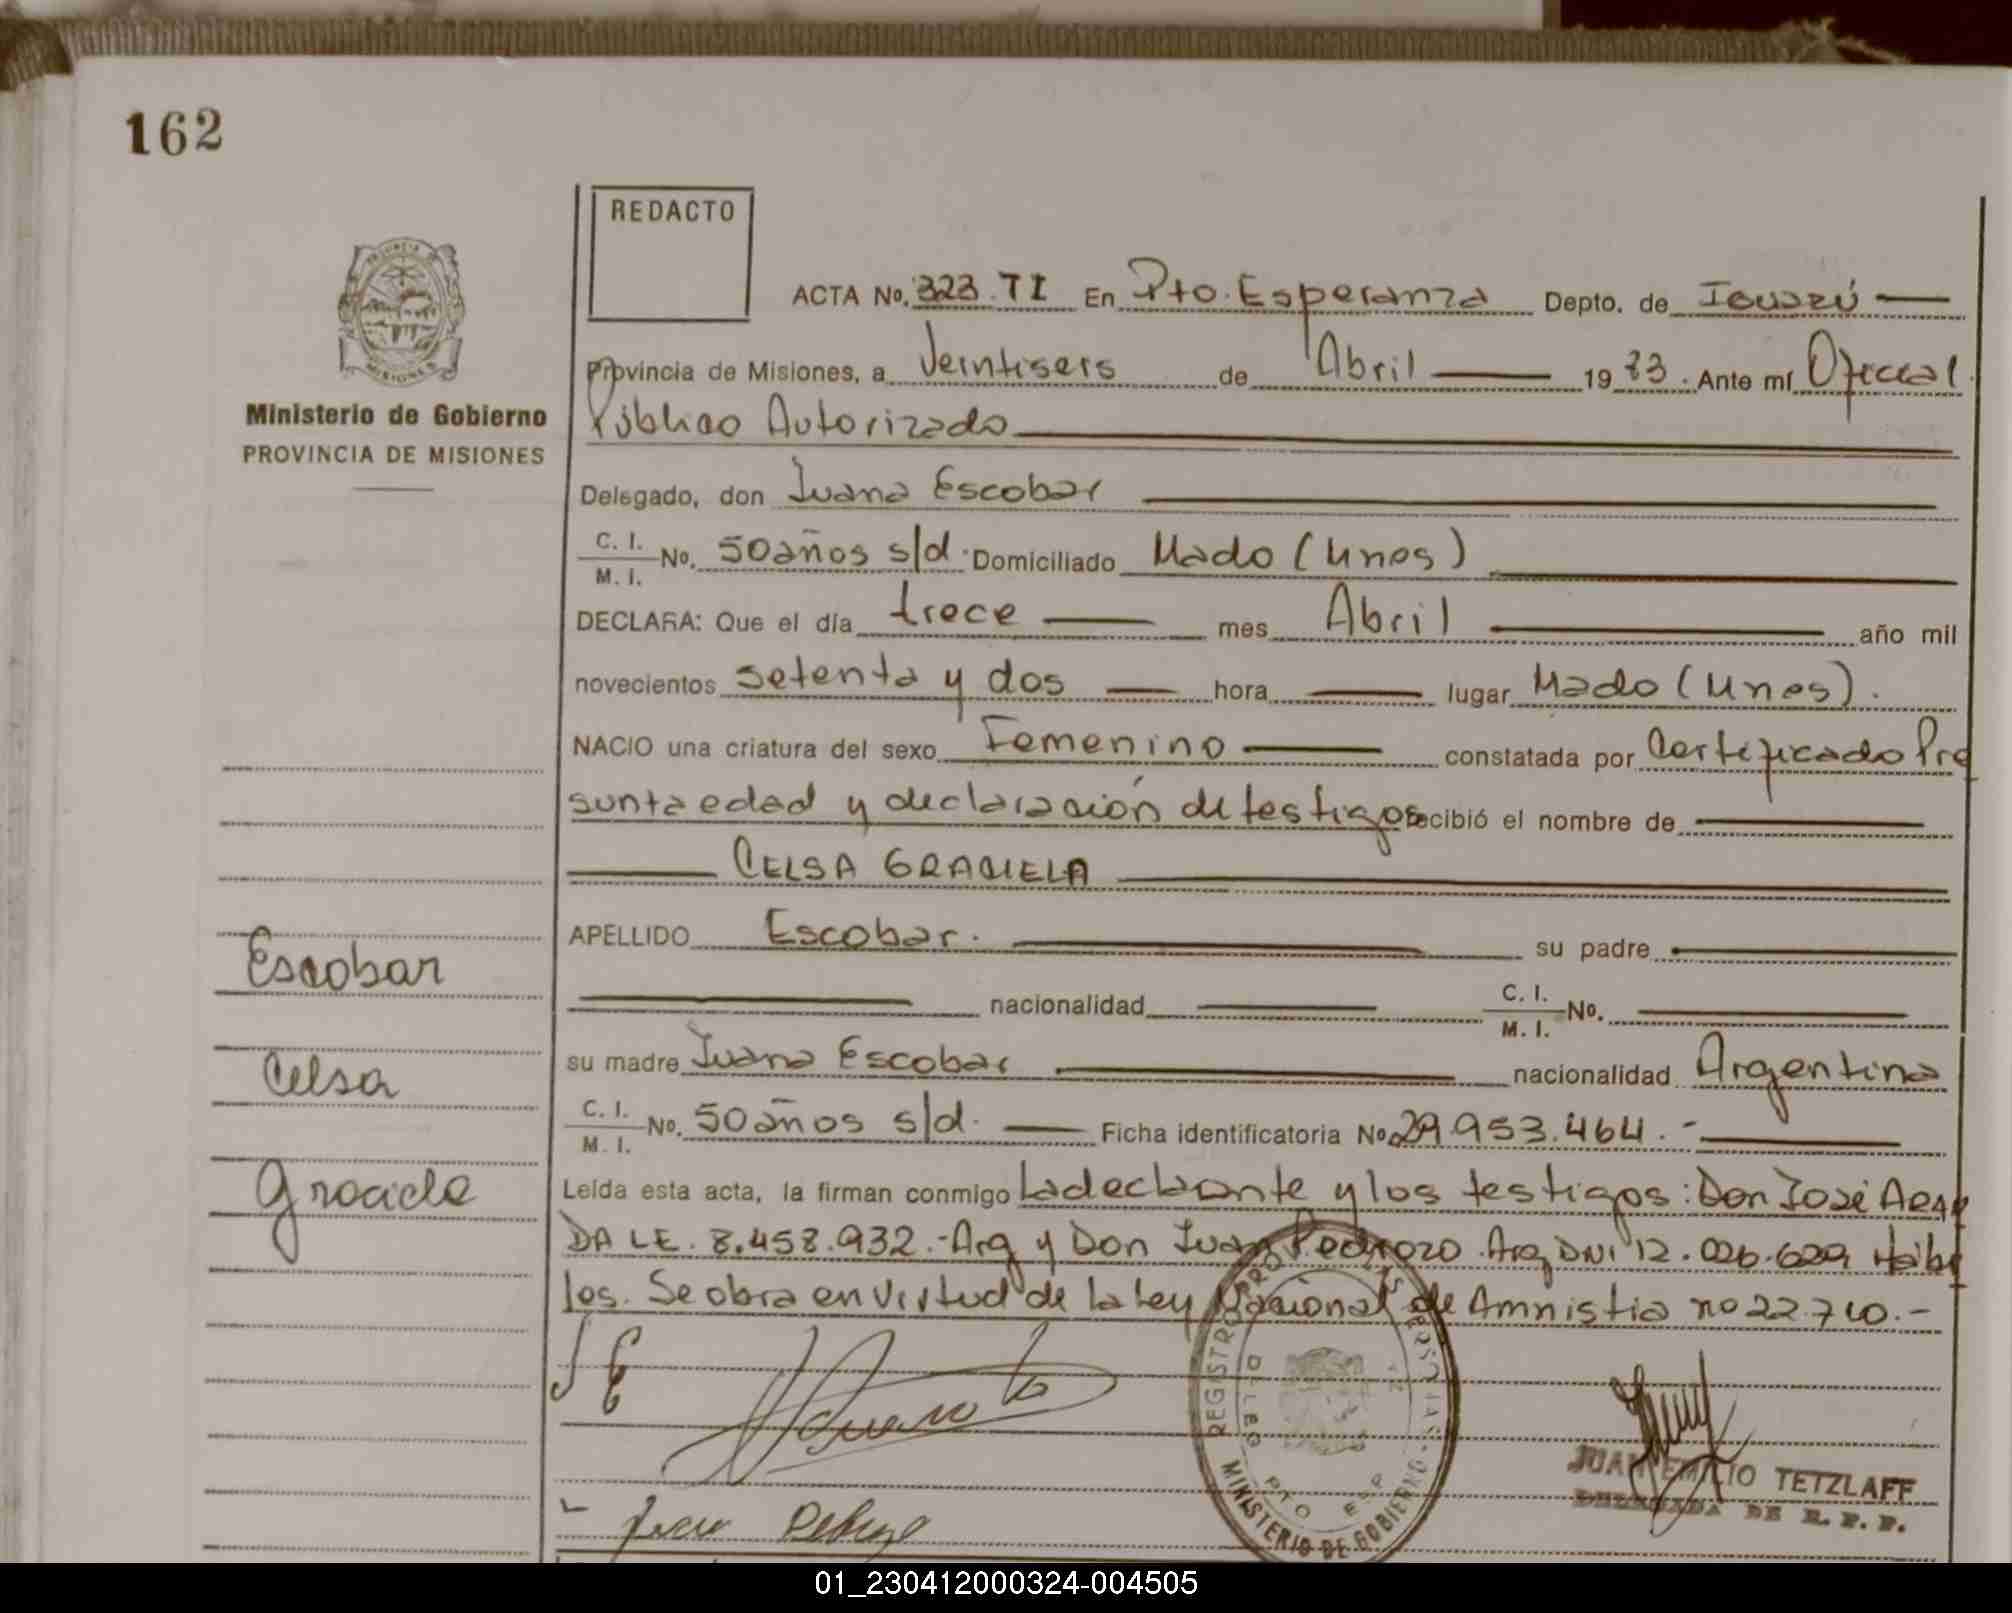 162
REDACTO
ACTA No. 323. TI En Pto. Esperanza Depto. de Iguazú
Provincia de Misiones, a Veintiseis de Abril 1983. Ante mí Oficial
Público Autorizado
Ministerio de Gobierno
PROVINCIA DE MISIONES
Delegado, don Juana Escobar
C. I. M. I. No. 50 años s/d. Domiciliado Mado (Mnes)
DECLARA: Que el día trece mes Abril año mil
novecientos setenta y dos hora lugar Mado (Mnes).
NACIO una criatura del sexo Femenino constatada por Certificado Pre
sunta edad y declaración de testigos recibió el nombre de
CELSA GRACIELA
APELLIDO Escobar. su padre
nacionalidad C. I. M. I. No.
su madre Juana Escobar nacionalidad Argentina
C. I. M. I. No. 50 años s/d. Ficha identificatoria No. 29.953.464.-
Escobar
Celsa
Graciela
Leída esta acta, la firman conmigo La declarante y los testigos: Don José
DA LE. 8.458.932.- Arg y Don Juan Pedrozo. Arg DNI 12.026.629 Hábi
les. Se obra en virtud de la Ley Nacional de Amnistia no 22.710.-
J E
REGISTRO MINISTERIO DE GOBIERNO
PTO ESP
JUAN EMILIO TETZLAFF
DE R. P. P.
01_230412000324-004505